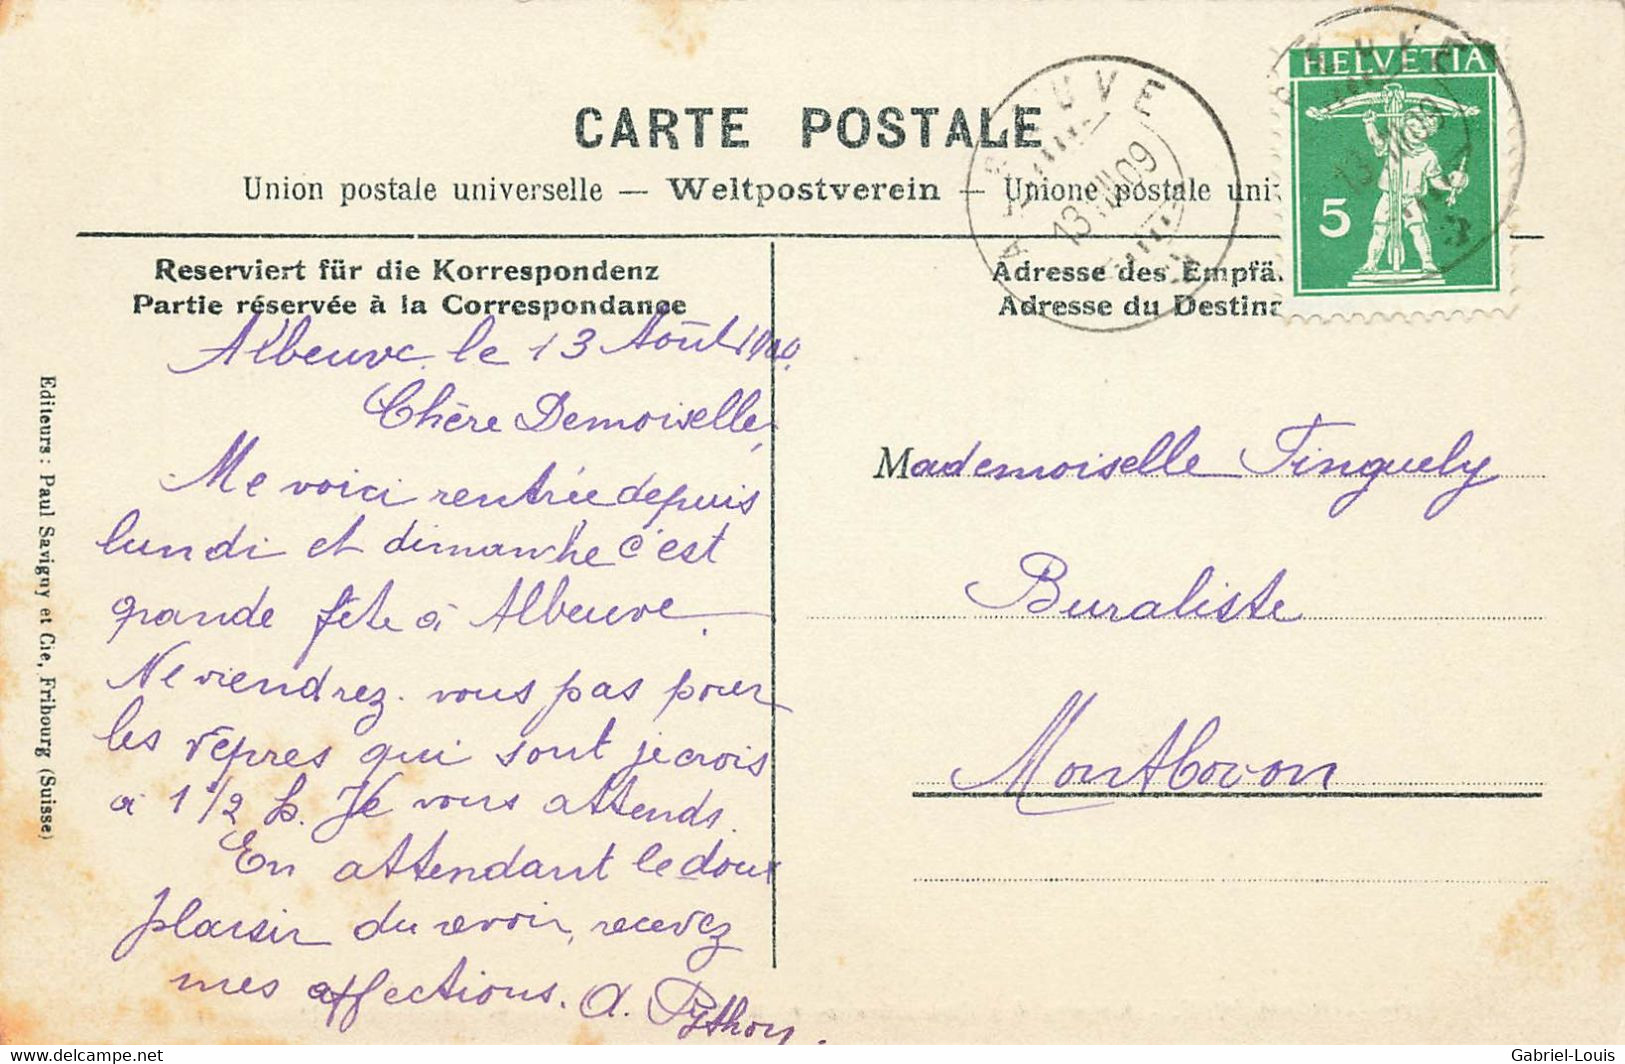 CARTE POSTALE
Union postale universelle — Weltpostverein — Unione postale uni
Reserviert für die Korrespondenz
Partie réservée à la Correspondance
Adresse des Empfä
Adresse du Destina
HELVETIA
5
ALBEUVE
13 VIII 09
ALBEUVE
13 VIII 09
Albeuve le 13 Août
Chère Demoiselle,
Me voici rentrée depuis
lundi et dimanche c'est
grande fête à Albeuve.
Ne viendrez-vous pas pour
les vêpres qui sont je crois
à 1 1/2 h. Je vous attends.
En attendant le doux
plaisir du revoir, recevez
mes affections. A. Pythoy.
Mademoiselle Tinguely
Buraliste
Montbovon
Editeurs: Paul Savigny et Cie, Fribourg (Suisse)
www.delcampe.net
Gabriel-Louis